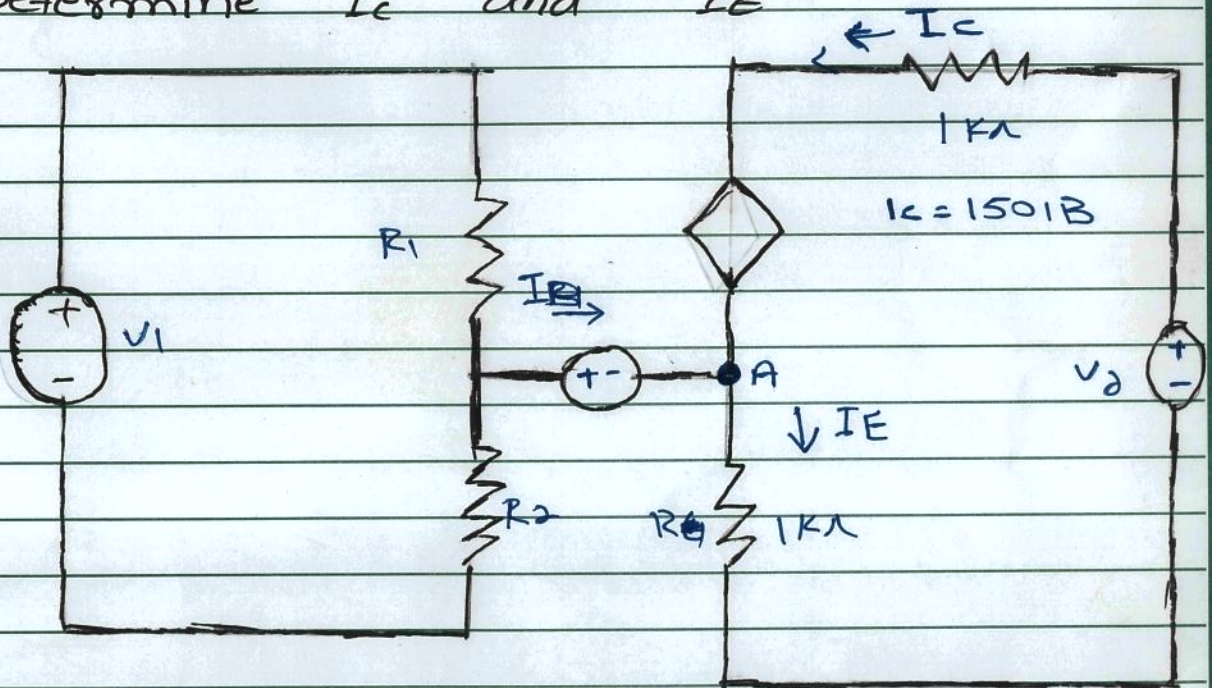 determine Ic and IE
← Ic
1 KΩ
Ic = 150IB
R1
IB
→
+
V1
-
+ -
A
↓ IE
V2
+
-
R2
1KΩ